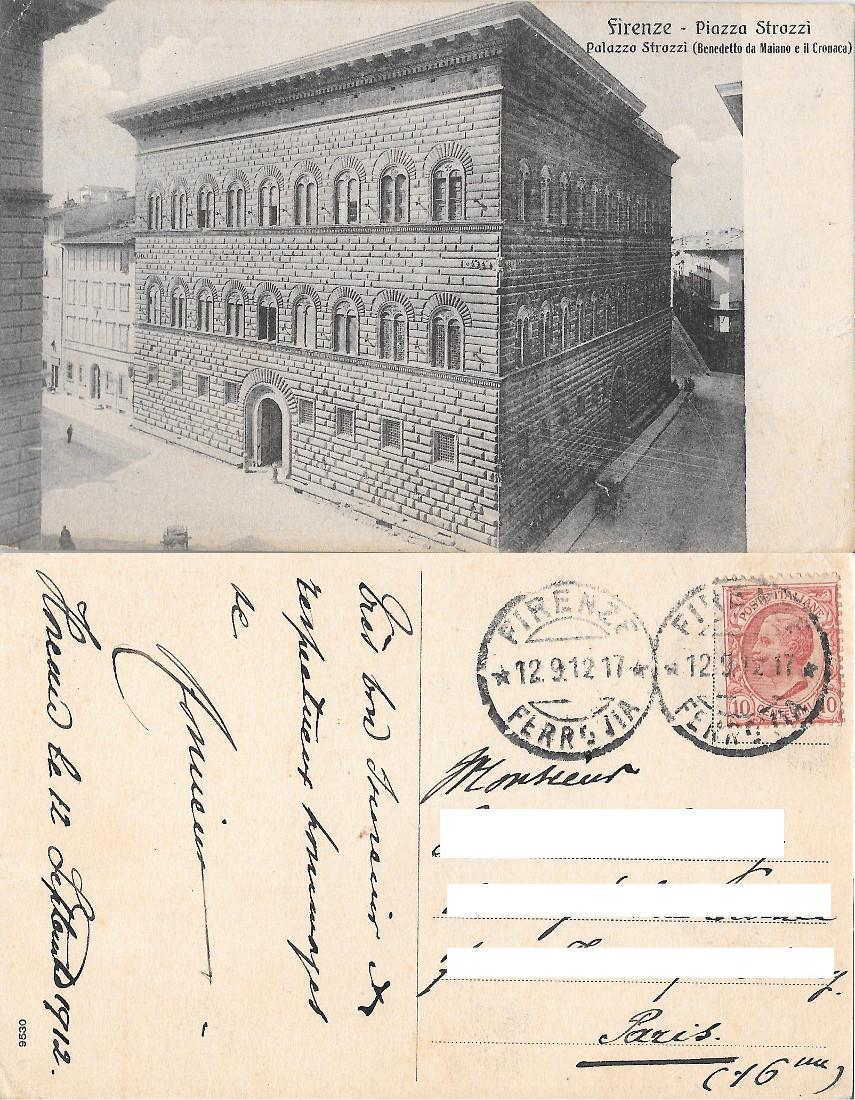 Firenze - Piazza Strozzi
Palazzo Strozzi (Benedetto da Maiano e il Cronaca)
FIRENZE
12.9.12 17
FERROVIA
FIRENZE
12.9.12 17
FERROVIA
POSTE ITALIANE
10 10
Très bon souvenir et
respectueux hommages
de
Florence le 12 Septembre 1912.
9530
Monsieur
Paris.
(16 me)